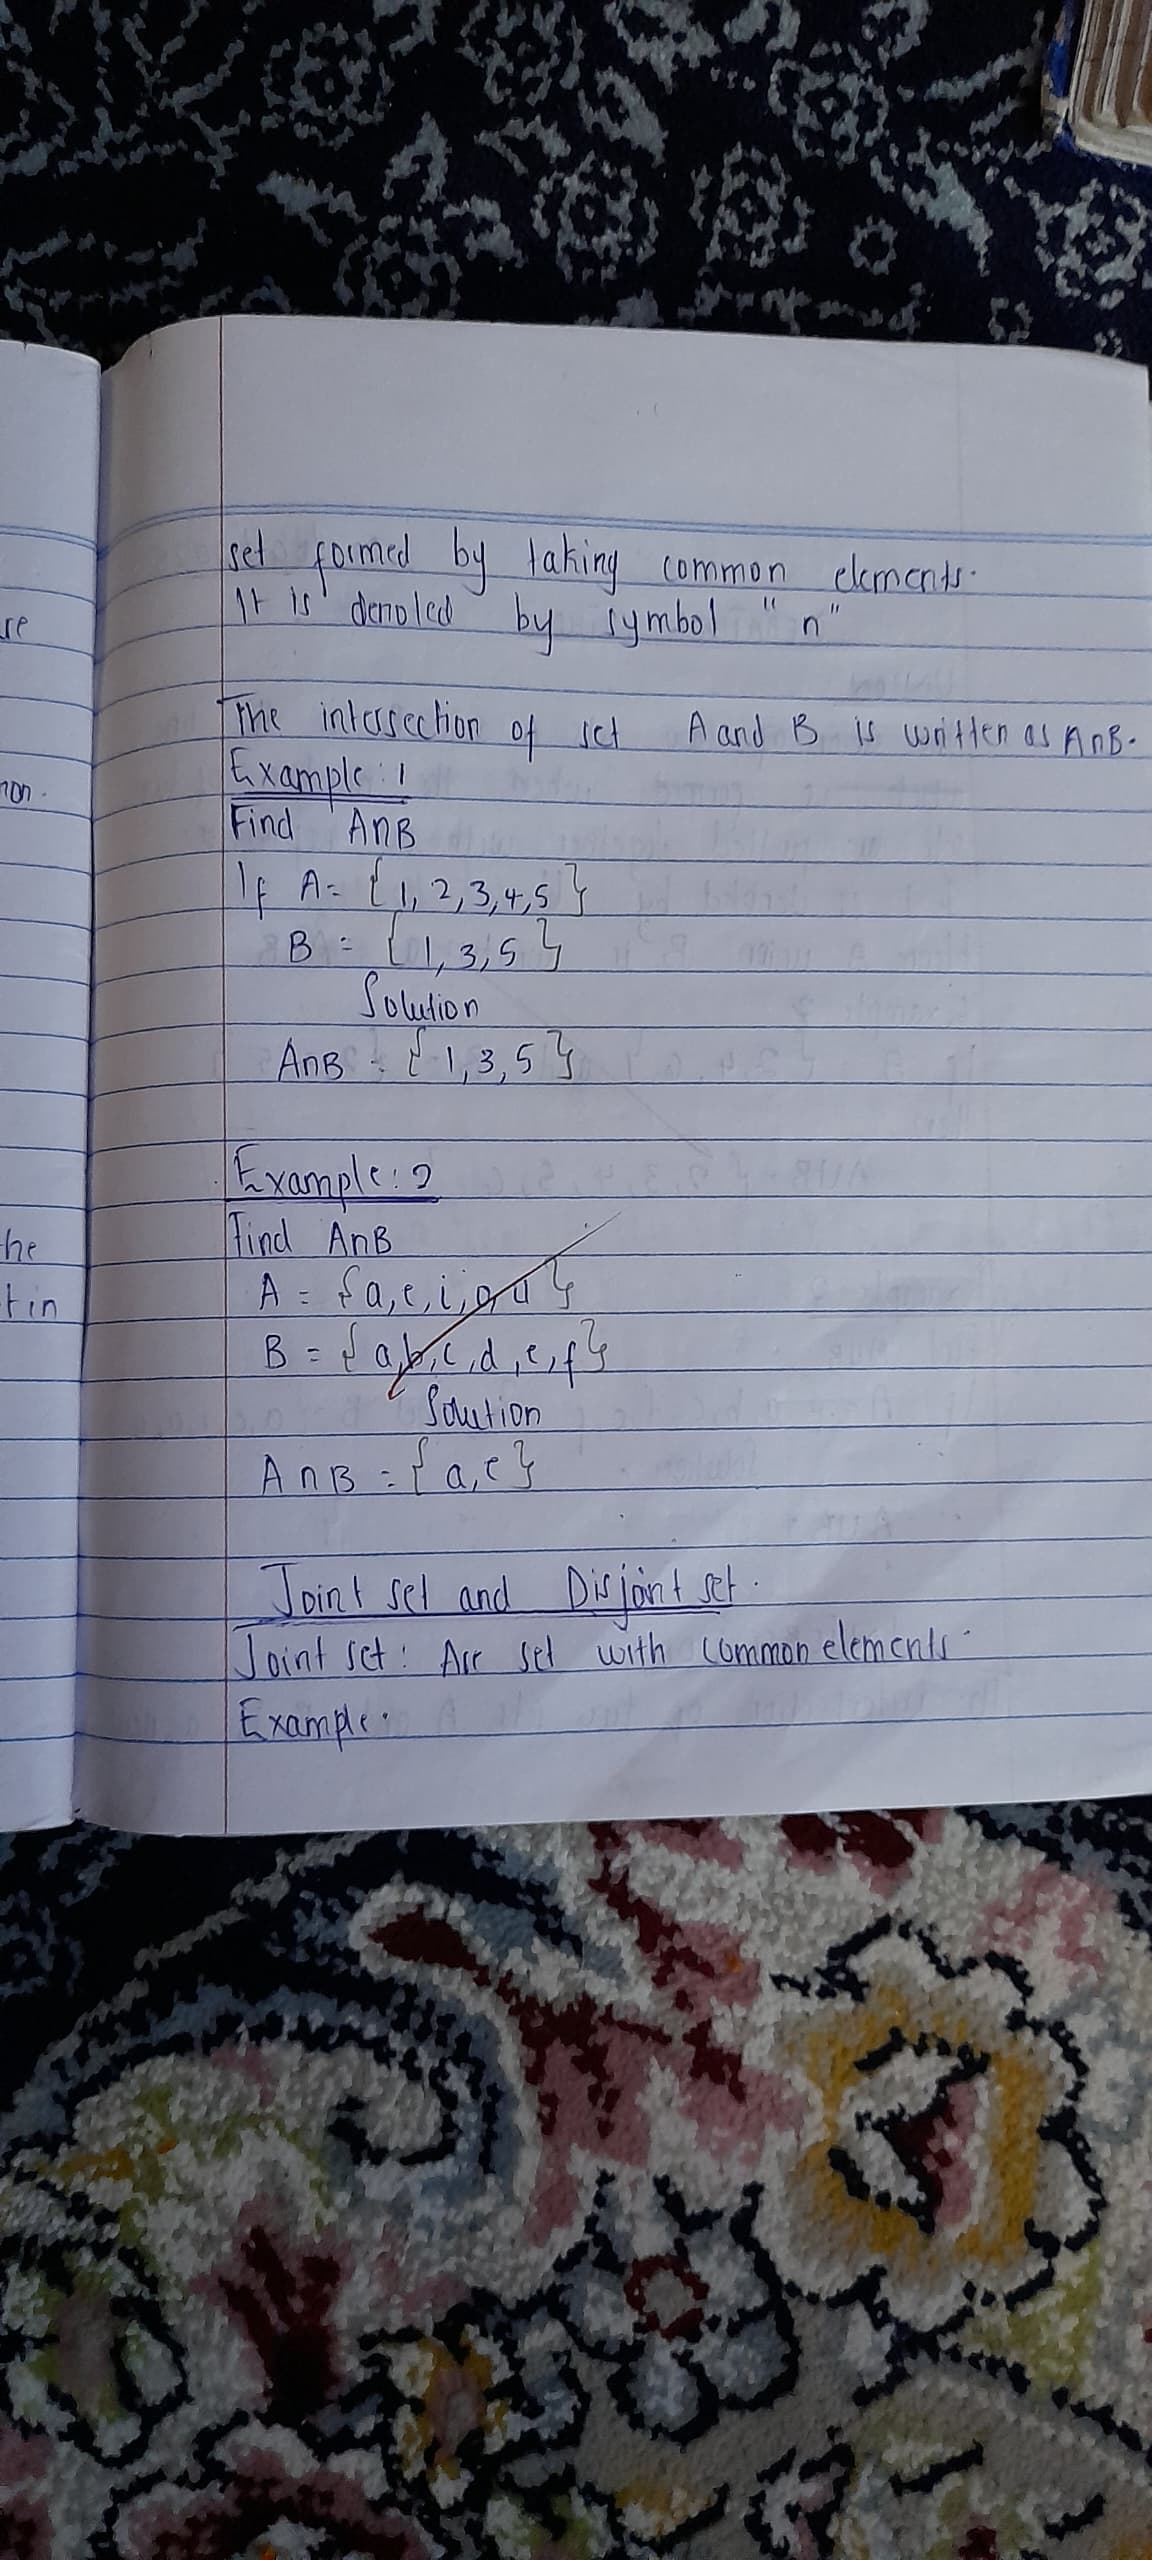 set formed by taking common elements.
It is denoted by symbol "n"
The intersection of set A and B is written as AnB.
Example: 1
Find AnB
If A = {1, 2, 3, 4, 5}
B = {1, 3, 5}
Solution
AnB = {1, 3, 5}
Example: 2
Find AnB
A = {a, e, i, o, u}
B = {a, b, c, d, e, f}
Solution
AnB = {a, e}
Joint set and Disjoint set.
Joint set: Are set with common elements.
Example.
he
t in